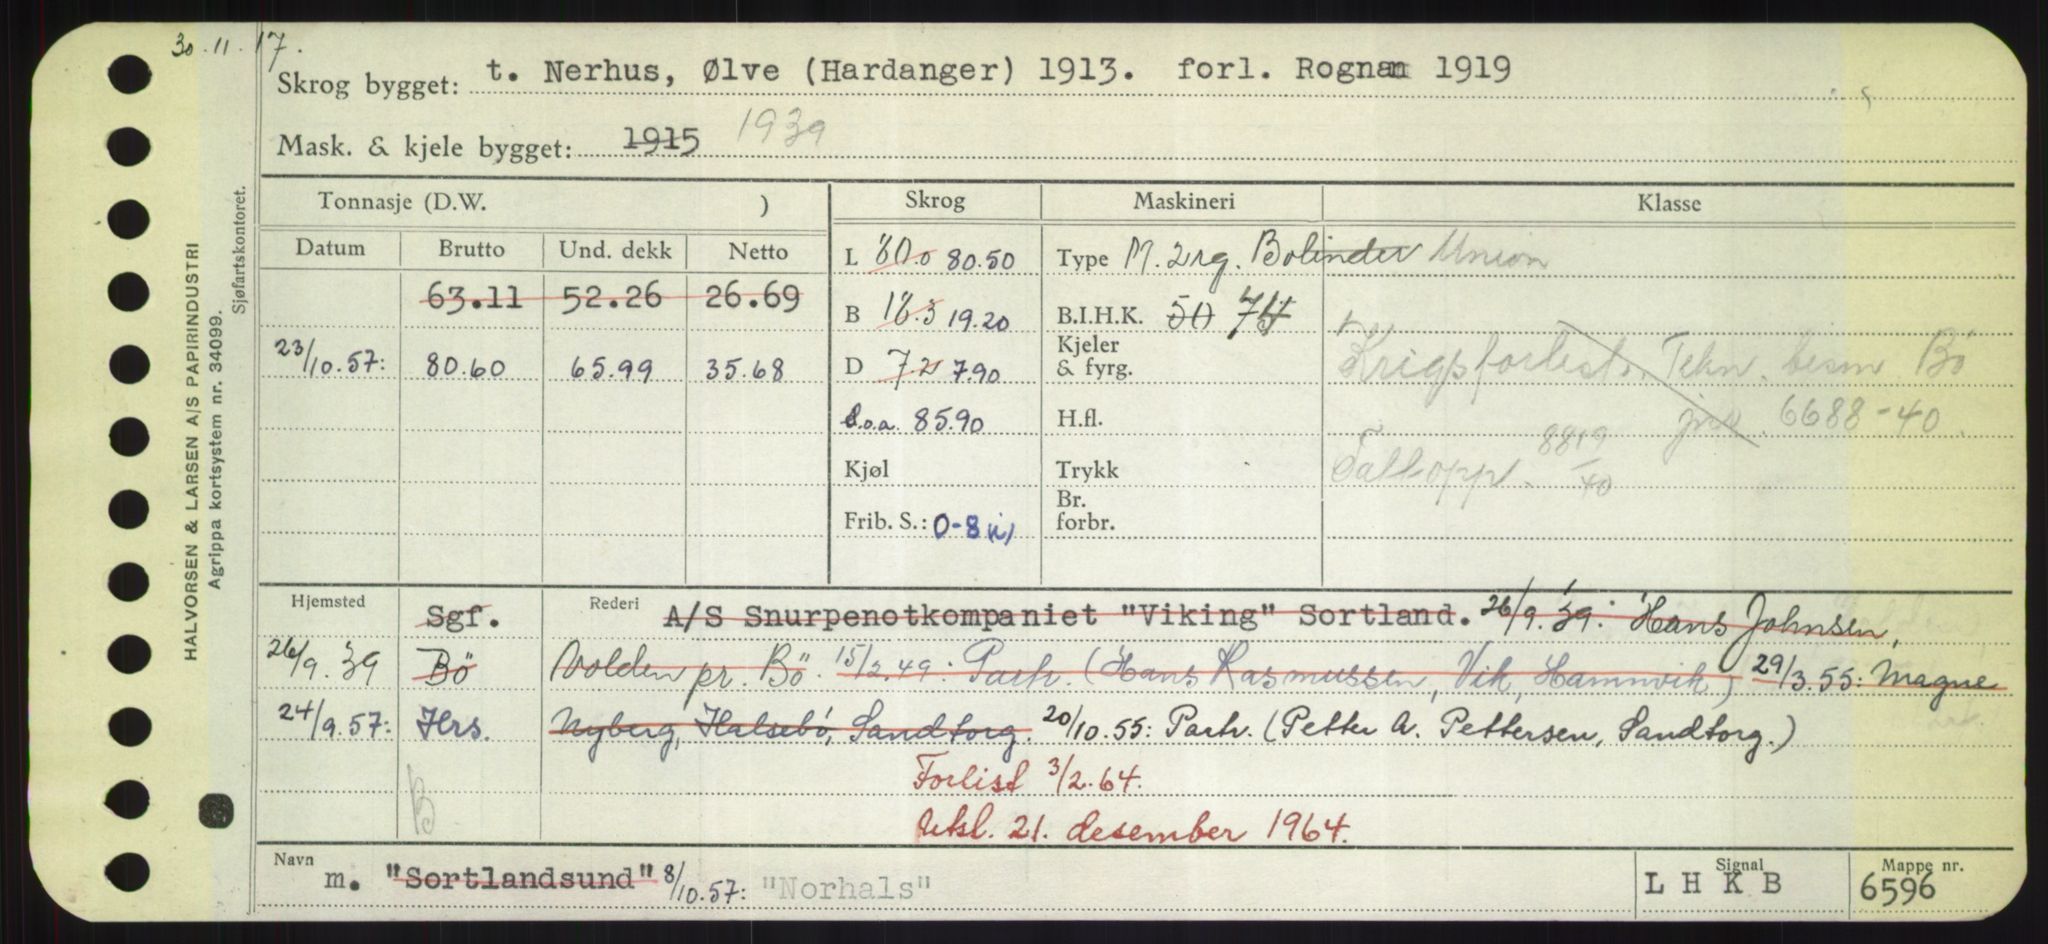 30.11.17.
Skrog bygget: t. Nerhus, Ølve (Hardanger) 1913. forl. Rognan 1919
Mask. & kjele bygget: 1915 1939
Tonnasje (D.W. ) Skrog Maskineri Klasse
Datum Brutto Und. dekk Netto L 80.0 80.50 Type M. 2 sg. Bolinder Union
63.11 52.26 26.69 B 18.3 19.20 B.I.H.K. 50 75
23/10.57: 80.60 65.99 35.68 D 7.2 7.90 Kjeler & fyrg. Krigsforlist. Tekn. besm Bö
L.o.a. 85.90 H.fl. jnr. 6688-40.
Kjøl Trykk Talloppl. 8819/40
Frib. S.: 0-8 Br. forbr.
Hjemsted Sgf. Rederi A/S Snurpenotkompaniet "Viking" Sortland. 26/9.39: Hans Johnsen,
26/9.39 Bö Volden pr. Bö. 15/2.49: Partr. (Hans Rasmussen, Vik, Hamnvik) 29/3.55: Magne
24/9.57: Hrs. Nyberg, Halsebö, Sandtorg. 20/10.55: Partr. (Petter A. Pettersen, Sandtorg.)
Forlist 3/2.64.
B Utsl. 21. desember 1964.
Navn m. "Sortlandsund" 8/10.57: "Norhals" Signal L H K B Mappe nr. 6596
HALVORSEN & LARSEN A/S PAPIRINDUSTRI
Agrippa kortsystem nr. 34099.
Sjøfartskontoret.